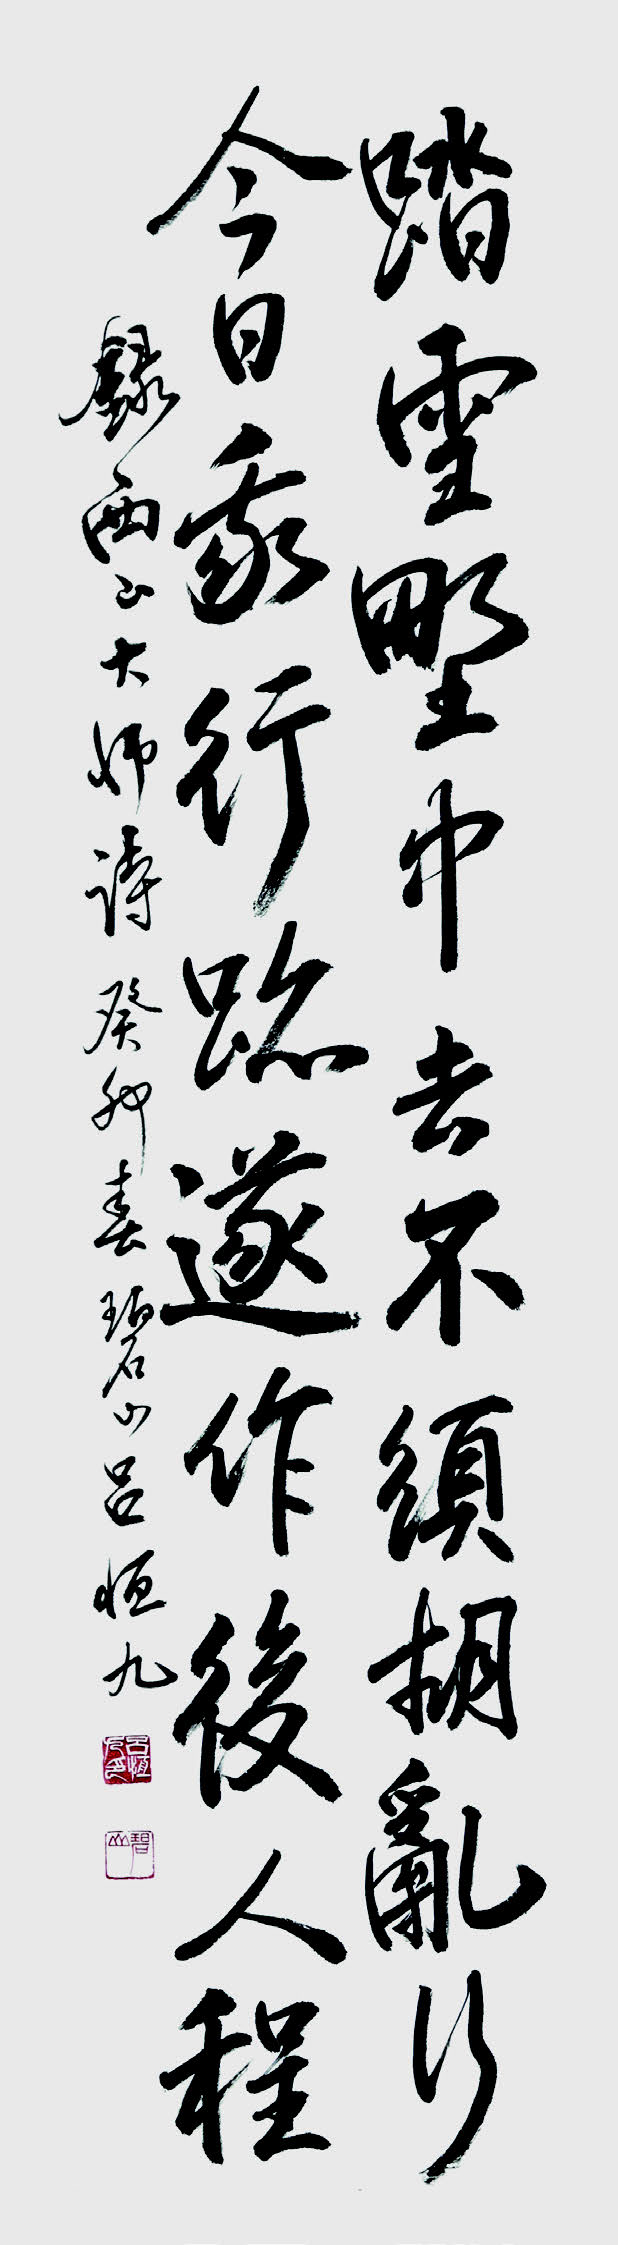 踏雪野中去不須胡亂行
今日我行跡遂作後人程
錄西山大師詩 癸卯春 碧山 呂恒九
呂恒九印
碧山